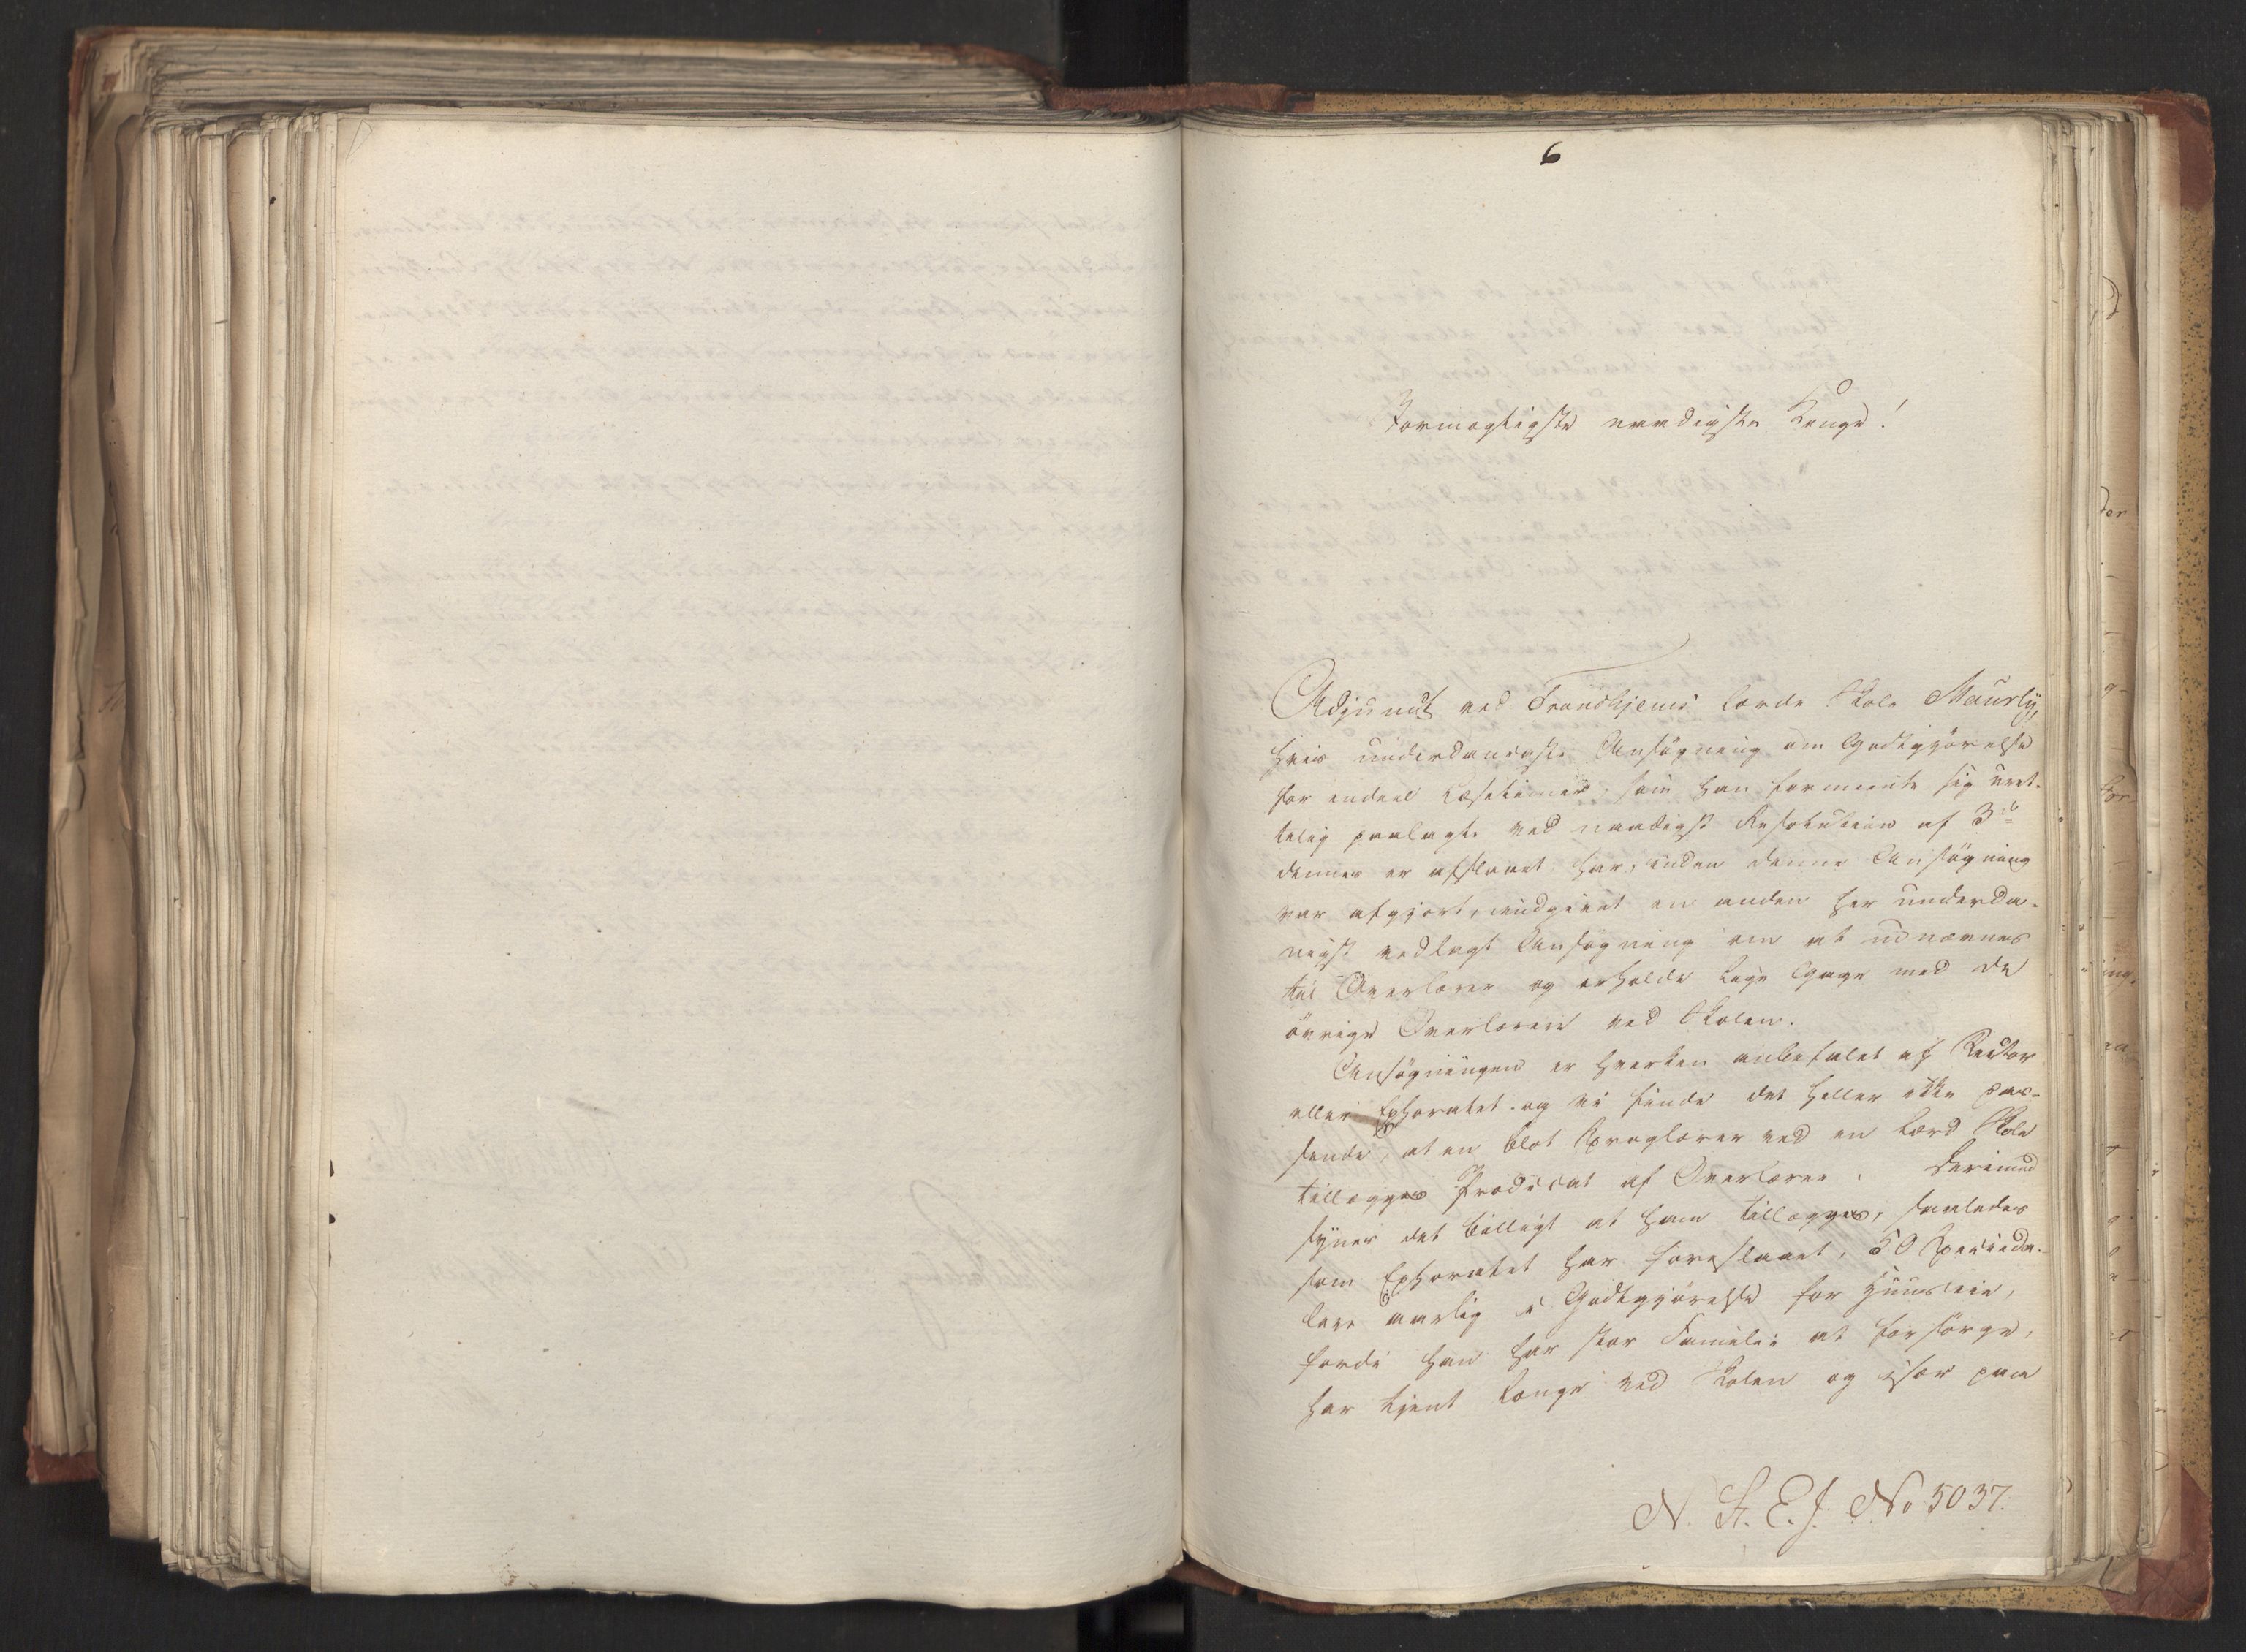 6
Stormægtigste naadigste Konge!
Adjunct ved Trondhjems lærde Skole Maurly,
hvis underdanigste Ansøgning om Godtgjørelse
for endeel Læsetimer, som han formeente sig uret-
telig paalagte ved naadigst Resolution af 3die
dennes er afslaaet, har, inden denne Ansøgning
var afgjort, indgivet en anden her underda-
nigst vedlagt Ansøgning om at udnævnes
til Overlærer og erholde lige Gage med de
øvrige Overlærere ved Skolen.
Ansøgningen er hverken anbefalet af Rector
eller Ephoratet og vi finde det heller ikke pas-
sende, at en blot Sproglærer ved en lærd Skole
tillægges Prædicat af Overlærer. Derimod
synes det billigt at ham tillægges, saaledes
som Ephoratet har foreslaaet, 50 Specieda-
lere aarlig i Godtgjørelse for Huusleie,
fordi han har stor Familie at forsørge,
har tjent længe ved Skolen og især paa
N. St. E. J. No 5037.